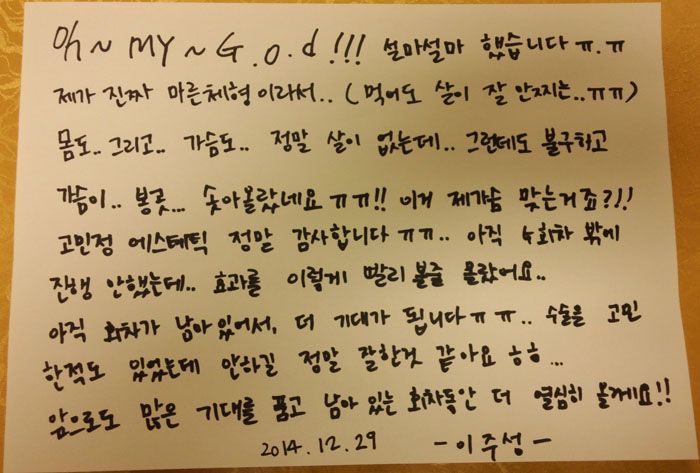 Oh~ MY~ G.o.d!!! 설마설마 했습니다ㅠ.ㅠ
제가 진짜 마른체형이라서.. (먹어도 살이 잘 안찌는..ㅠㅠ)
몸도.. 그리고.. 가슴도.. 정말 살이 없는데.. 그런데도 불구하고
가슴이.. 봉긋... 솟아올랐네요 ㅠㅠ!! 이거 제가슴 맞는거죠?!!
고민정 에스테틱 정말 감사합니다 ㅠㅠ.. 아직 4회차 밖에
진행 안했는데.. 효과를 이렇게 빨리 볼줄 몰랐어요..
아직 회차가 남아있어서, 더 기대가 됩니다ㅠㅠ.. 수술을 고민
한적도 있었는데 안하길 정말 잘한것 같아요 ㅎㅎ...
앞으로도 많은 기대를 품고 남아 있는 회차동안 더 열심히 올게요!!
2014.12.29 -이주성-